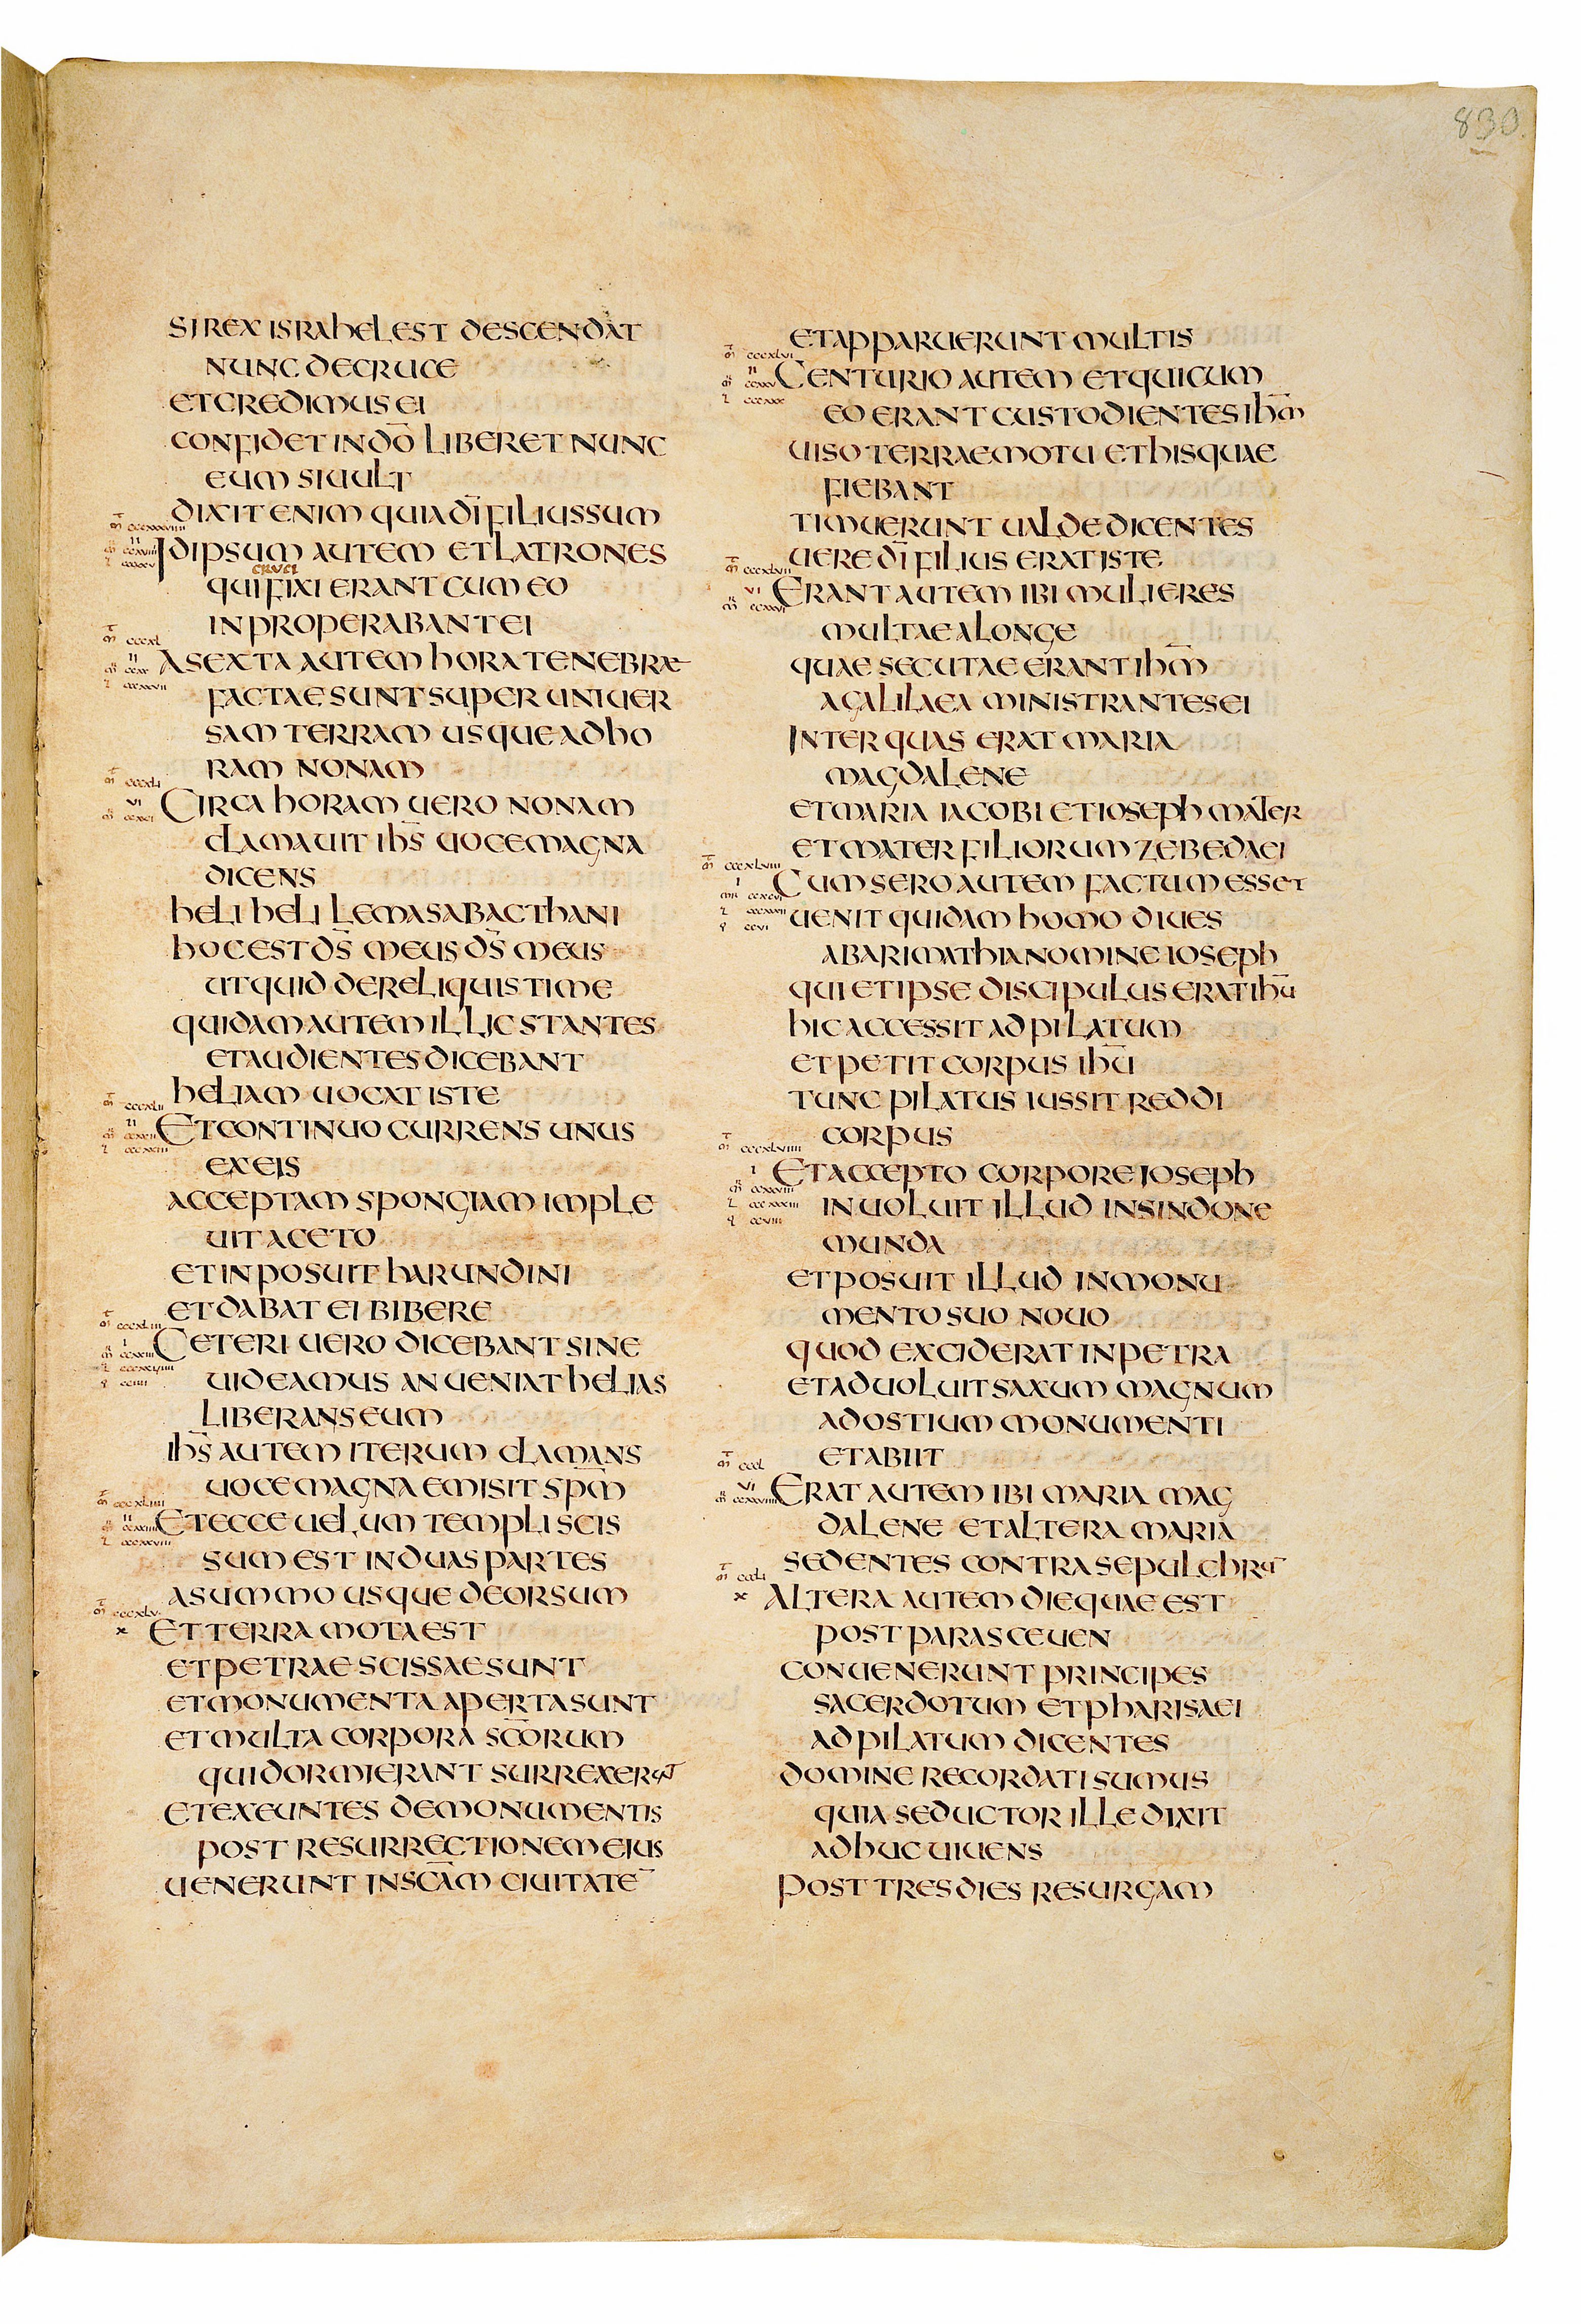 830
SI REX ISRAHEL EST DESCENDAT
NUNC DE CRUCE
ET CREDIMUS EI
CONFIDET IN DO̅ LIBERET NUNC
EUM SI UULT
DIXIT ENIM QUIA DI̅ FILIUS SUM
IDIPSUM AUTEM ET LATRONES
CRUCI
QUI FIXI ERANT CUM EO
INPROPERABANT EI
A SEXTA AUTEM HORA TENEBRAE
FACTAE SUNT SUPER UNIUER
SAM TERRAM USQUE AD HO
RAM NONAM
CIRCA HORAM UERO NONAM
CLAMAUIT IHS̅ UOCE MAGNA
DICENS
HELI HELI LEMA SABACTHANI
HOC EST DS̅ MEUS DS̅ MEUS
UT QUID DERELIQUISTI ME
QUIDAM AUTEM ILLIC STANTES
ET AUDIENTES DICEBANT
HELIAM UOCAT ISTE
ET CONTINUO CURRENS UNUS
EX EIS
ACCEPTAM SPONGIAM IMPLE
UIT ACETO
ET INPOSUIT HARUNDINI
ET DABAT EI BIBERE
CETERI UERO DICEBANT SINE
UIDEAMUS AN UENIAT HELIAS
LIBERANS EUM
IHS̅ AUTEM ITERUM CLAMANS
UOCE MAGNA EMISIT SPM̅
ET ECCE UELUM TEMPLI SCIS
SUM EST IN DUAS PARTES
A SUMMO USQUE DEORSUM
ET TERRA MOTA EST
ET PETRAE SCISSAE SUNT
ET MONUMENTA APERTA SUNT
ET MULTA CORPORA SC̅ORUM
QUI DORMIERANT SURREXERUNT
ET EXEUNTES DE MONUMENTIS
POST RESURRECTIONEM EIUS
UENERUNT IN SC̅AM CIUITATE̅
ET APPARUERUNT MULTIS
CENTURIO AUTEM ET QUI CUM
EO ERANT CUSTODIENTES IHM̅
UISO TERRAEMOTU ET HIS QUAE
FIEBANT
TIMUERUNT UALDE DICENTES
UERE DI̅ FILIUS ERAT ISTE
ERANT AUTEM IBI MULIERES
MULTAE A LONGE
QUAE SECUTAE ERANT IHM̅
A GALILAEA MINISTRANTES EI
INTER QUAS ERAT MARIA
MAGDALENE
ET MARIA IACOBI ET IOSEPH MATER
ET MATER FILIORUM ZEBEDAEI
CUM SERO AUTEM FACTUM ESSET
UENIT QUIDAM HOMO DIUES
AB ARIMATHIA NOMINE IOSEPH
QUI ET IPSE DISCIPULUS ERAT IHU̅
HIC ACCESSIT AD PILATUM
ET PETIT CORPUS IHU̅
TUNC PILATUS IUSSIT REDDI
CORPUS
ET ACCEPTO CORPORE IOSEPH
INUOLUIT ILLUD IN SINDONE
MUNDA
ET POSUIT ILLUD IN MONU
MENTO SUO NOUO
QUOD EXCIDERAT IN PETRA
ET ADUOLUIT SAXUM MAGNUM
AD OSTIUM MONUMENTI
ET ABIIT
ERAT AUTEM IBI MARIA MAG
DALENE ET ALTERA MARIA
SEDENTES CONTRA SEPULCHRUM
ALTERA AUTEM DIE QUAE EST
POST PARASCEUEN
CONUENERUNT PRINCIPES
SACERDOTUM ET PHARISAEI
AD PILATUM DICENTES
DOMINE RECORDATI SUMUS
QUIA SEDUCTOR ILLE DIXIT
ADHUC UIUENS
POST TRES DIES RESURGAM